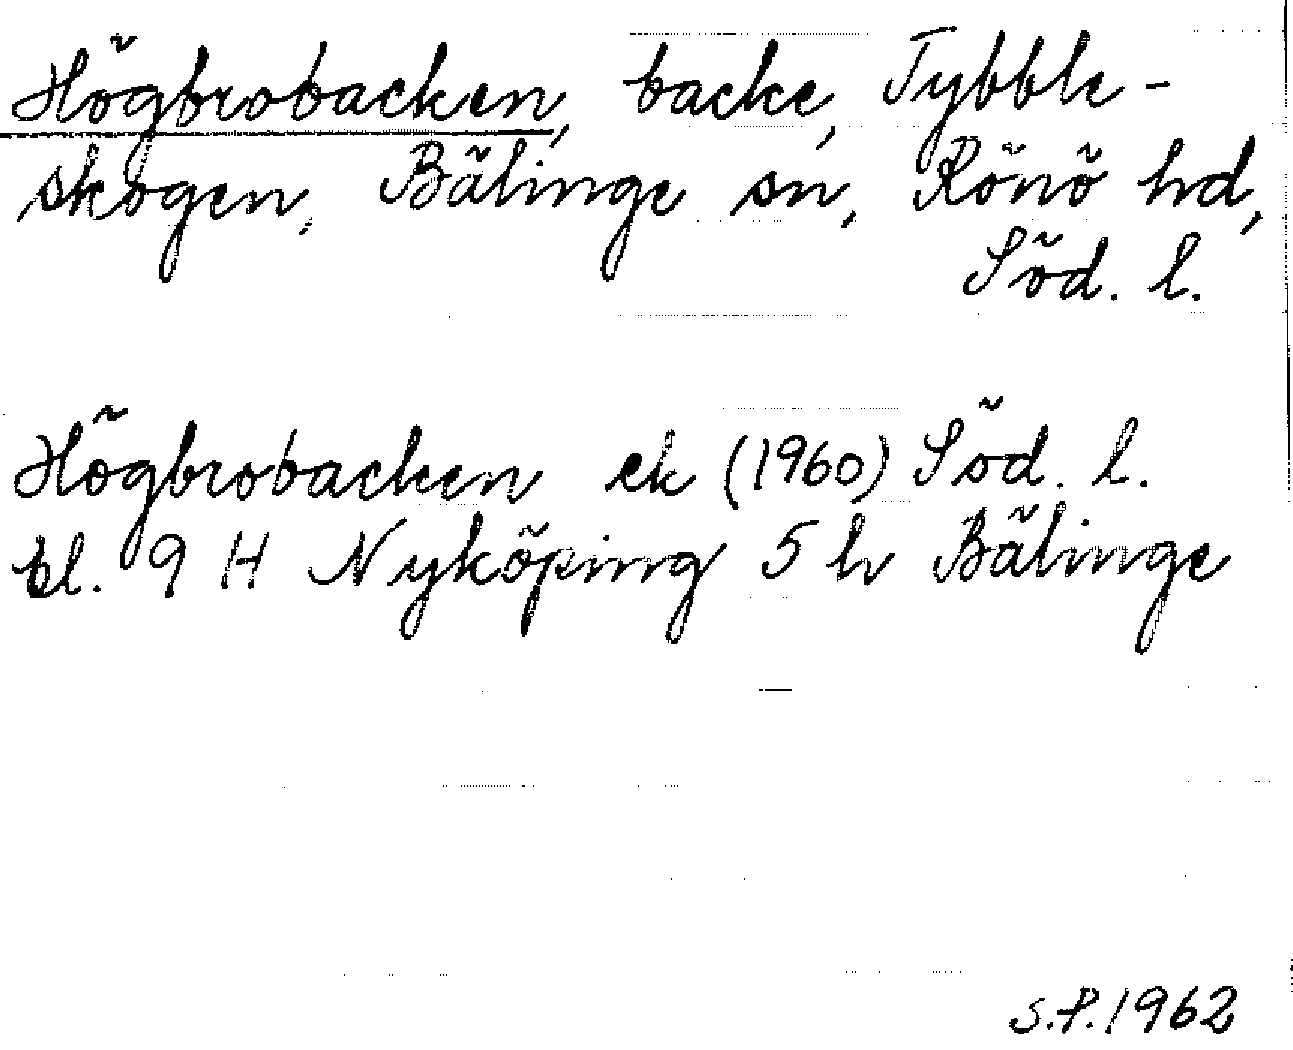 Högbrobacken, backe, Tybble-
skogen, Bälinge sn, Rönö hd,
Söd. l.
Högbrobacken ek (1960) Söd. l.
bl. 9 H Nyköping 5 h Bälinge
S.P. 1962